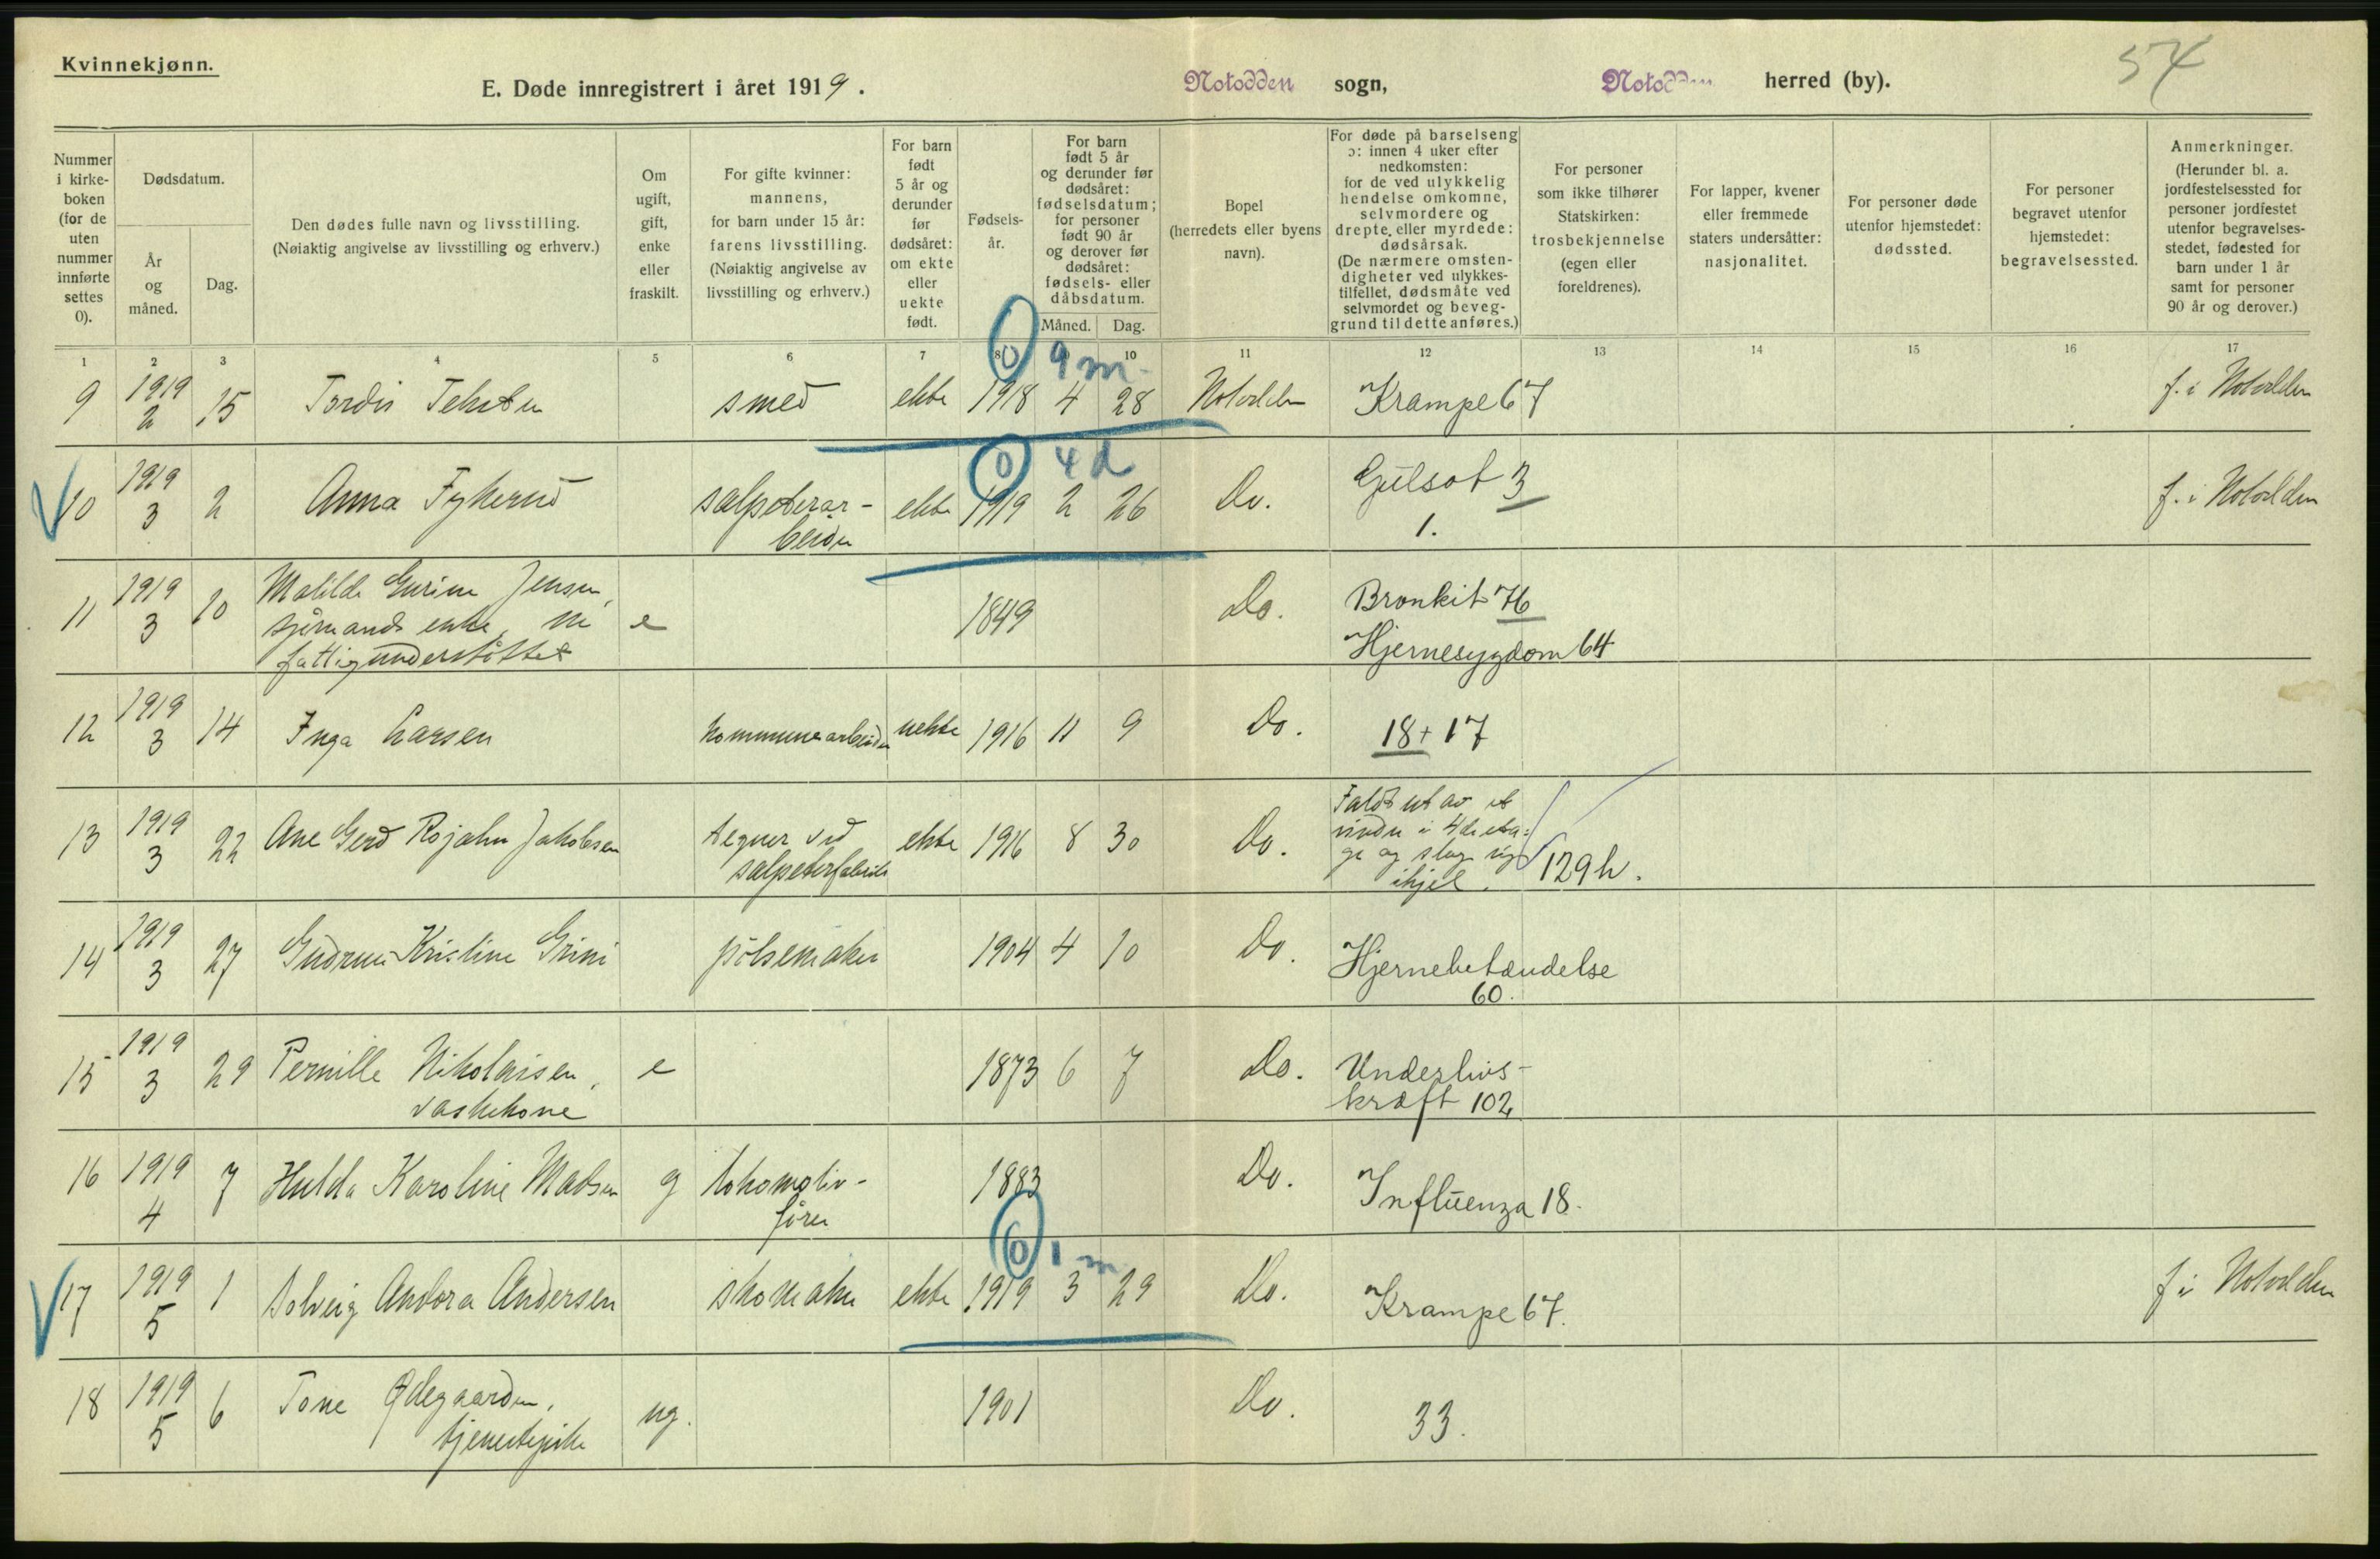 Kvinnekjønn.
E. Døde innregistrert i året 1919.
Notodden sogn,
Notodden herred (by).
54
Nummer i kirke-boken (for de uten nummer innførte settes 0).
Dødsdatum.
År og måned.
Dag.
Den dødes fulle navn og livsstilling.
(Nøiaktig angivelse av livsstilling og erhverv.)
Om ugift, gift, enke eller fraskilt.
For gifte kvinner: mannens, for barn under 15 år: farens livsstilling. (Nøiaktig angivelse av livsstilling og erhverv.)
For barn født 5 år og derunder før dødsåret: om ekte eller uekte født.
Fødsels-år.
For barn født 5 år og derunder før dødsåret: fødselsdatum; for personer født 90 år og derover før dødsåret: fødsels- eller dåbsdatum.
Måned. Dag.
Bopel (herredets eller byens navn).
For døde på barselseng ɔ: innen 4 uker efter nedkomsten: for de ved ulykkelig hendelse omkomne, selvmordere og drepte eller myrdede: dødsårsak. (De nærmere omsten-digheter ved ulykkes-tilfellet, dødsmåte ved selvmordet og beveg-grund til dette anføres.)
For personer som ikke tilhører Statskirken: trosbekjennelse (egen eller foreldrenes).
For lapper, kvener eller fremmede staters undersåtter: nasjonalitet.
For personer døde utenfor hjemstedet: dødssted.
For personer begravet utenfor hjemstedet: begravelsessted.
Anmerkninger. (Herunder bl. a. jordfestelsessted for personer jordfestet utenfor begravelses-stedet, fødested for barn under 1 år samt for personer 90 år og derover.)
1 2 3 4 5 6 7 8 9 10 11 12 13 14 15 16 17
0 9 m
9 1919 2 15 Tordis smed ekte 1918 4 28 Notodden Krampe 67 f. i Notodden
0 4 d
10 1919 3 2 Anna Fykerud salpeterar-beider ekte 1919 2 26 Do. Gulsot 3 f. i Notodden
1.
11 1919 3 10 Matilde Gurine Jensen, e 1849 Do. Bronkit 76
sjømands enke, ni
fattigunderstøttet Hjernesygdom 64
12 1919 3 14 Inga Larsen kommunearbeider uekte 1916 11 9 Do. 18 + 17
13 1919 3 22 Ane Gerd Rojahn Jakobsen tegner ved salpeterfabrik ekte 1916 8 30 Do. Faldt ut av et
vindu i 4de eta-
ge og slog sig
ihjel. 129h.
14 1919 3 27 Gudrun Kristine Grini pølsemaker 1904 4 10 Do. Hjernebetændelse
60.
15 1919 3 29 Pernille Nikolaisen, e 1873 6 7 Do. Underlivs-
vaskekone kræft 102
16 1919 4 7 Hulda Karoline Madsen g lokomotiv-fører 1883 Do. Influenza 18.
0 1 m
17 1919 5 1 Solveig Andora Andersen skomaker ekte 1919 3 29 Do. Krampe 67. f i Notodden
18 1919 5 6 Tone Ødegaarden, ug. 1901 Do. 33.
tjenestepike